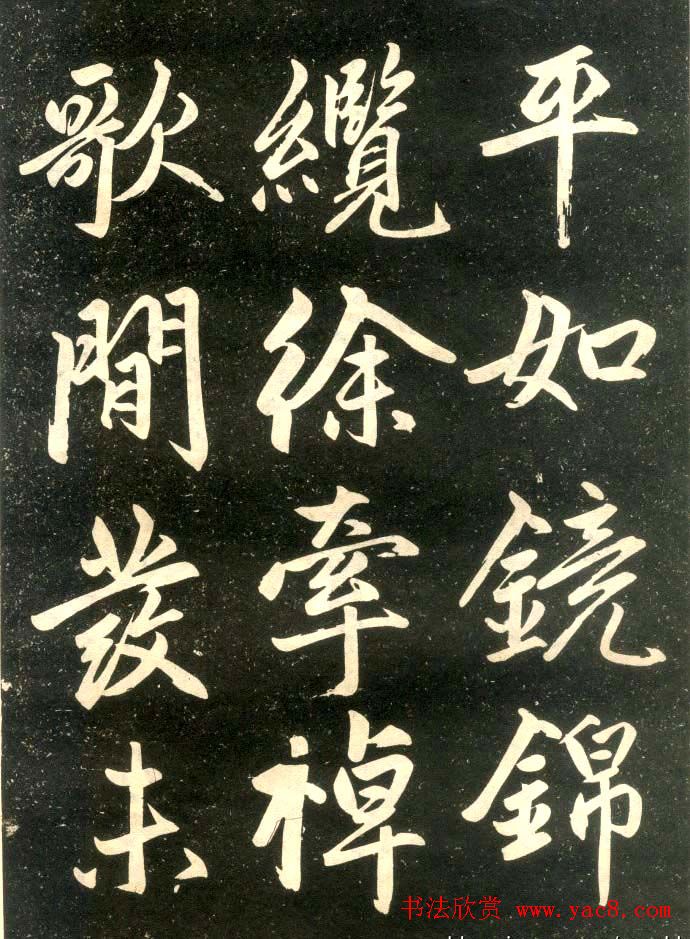 平如鏡錦
纜徐牽棹
歌間發未
书法欣赏 www.yac8.com